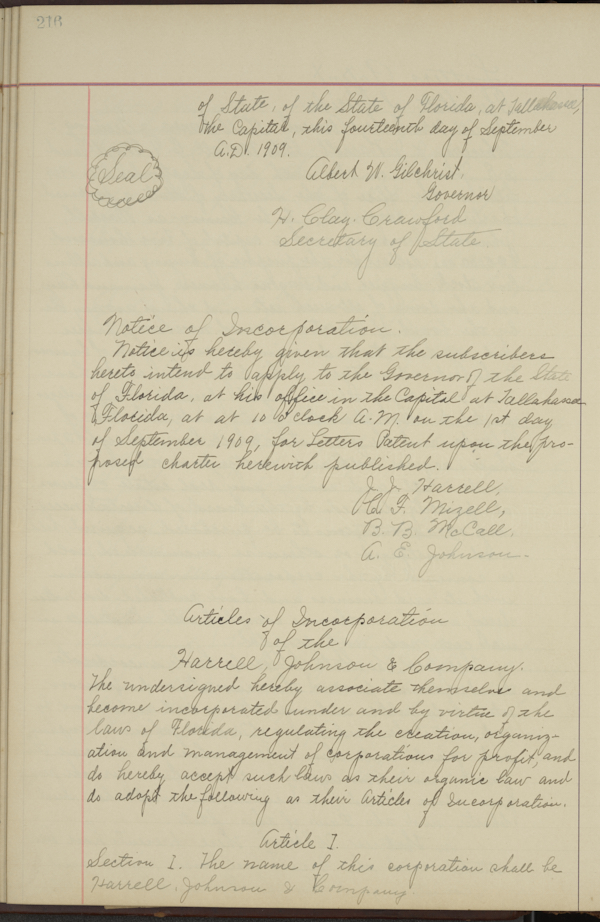 216
of State, of the State of Florida, at Tallahassee,
the Capital, this fourteenth day of September
A.D. 1909.
Seal
Albert W. Gilchrist.
Governor
H. Clay Crawford
Secretary of State.
Notice of Incorporation.
Notice is hereby given that the subscribers
hereto intend to apply to the Governor of the State
of Florida, at his office in the Capital at Tallahassee
Florida, at at 10 o'clock A.M. on the 1st day
of September 1909, for Letters Patent upon the pro-
posed charter herewith published.
J. J. Harrell,
F. Mizell,
B. B. McCall,
A. E. Johnson.
Articles of Incorporation
of the
Harrell, Johnson & Company.
The undersigned hereby associate themselves and
become incorporated under and by virtue of the
laws of Florida, regulating the creation, organiz-
ation and management of corporations for profit, and
do hereby accept such laws as their organic law and
do adopt the following as their Articles of Incorporation.
Article I.
Section I. The name of this corporation shall be
Harrell, Johnson & Company.